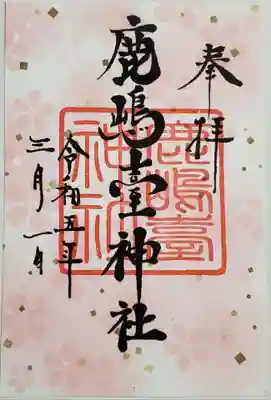 奉拝
鹿嶋臺神社
令和五年
三月一日
鹿嶋臺
神社